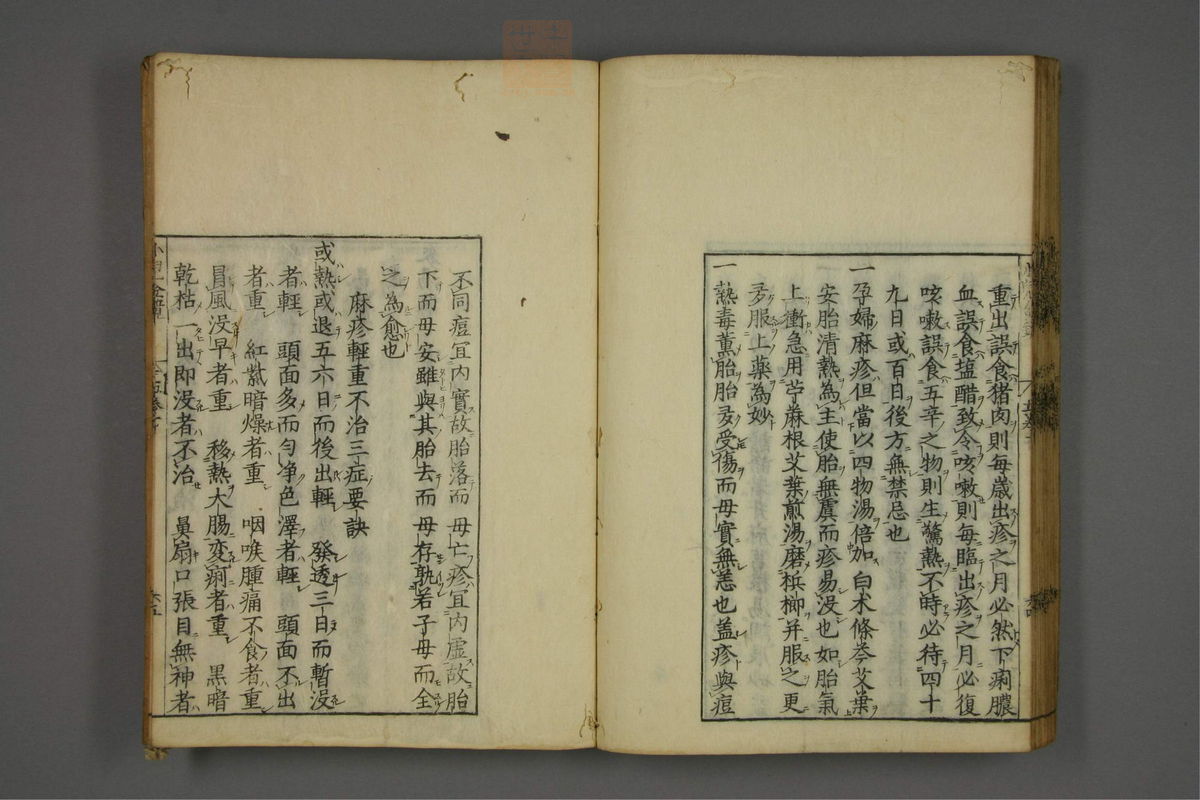 重出誤食猪肉則每歳出疹之月必然下痢膿
血誤食塩醋致令咳嗽則每臨出疹之月必復
咳嗽誤食五辛之物則生驚熱不時必待四十
九日或百日後方無禁忌也
一孕婦麻疹但當以四物湯倍加白朮條芩艾葉
安胎清熱為主使胎無虞而疹易没也如胎氣
上衝急用苧麻根艾葉煎湯磨梹榔并服之更
多服上藥為妙
一熱毒薫胎胎多受傷而母實無恙也盖疹與痘
不同痘宜内實故胎落而母亡疹宜内虚故胎
下而母安雖與其胎去而母存孰若子母而全
之為愈也
麻疹輕重不治三症要訣
或熱或退五六日而後出輕 發透三日而暫没
者輕 頭面多而匀净色澤者輕 頭面不出
者重 紅紫暗燥者重 咽喉腫痛不食者重
冒風没早者重 移熱大腸変痢者重 黒暗
乾枯一出即没者不治 鼻扇口張目無神者